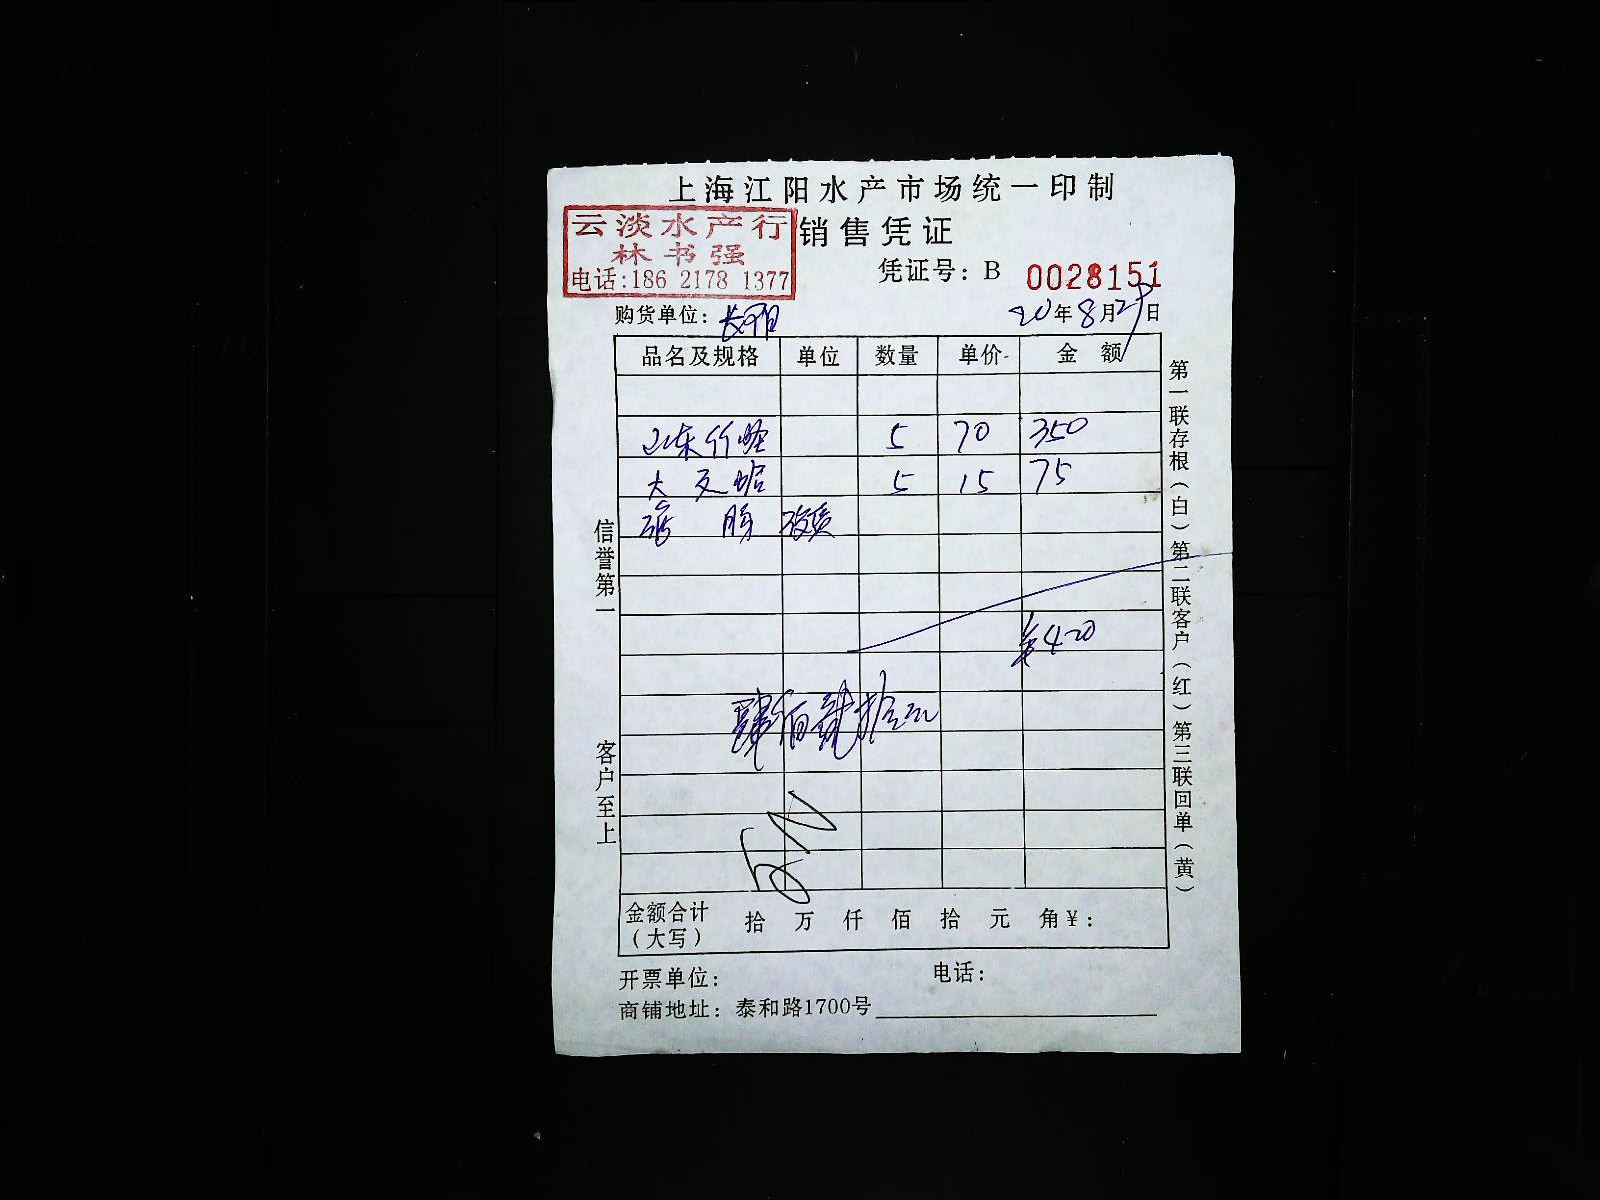 上海江阳水产市场统一印制
云淡水产行
林书强
电话:186 2178 1377
销售凭证
凭证号: B 0028151
购货单位: 长阳
20年8月29日
品名及规格 单位 数量 单价 金额
山东竹蛏 5 70 350
大文蛤 5 15 75
¥420
肆佰贰拾元
金额合计(大写) 拾 万 仟 佰 拾 元 角 ¥:
开票单位: 电话:
商铺地址: 泰和路1700号
信誉第一
客户至上
第一联存根(白)第二联客户(红)第三联回单(黄)